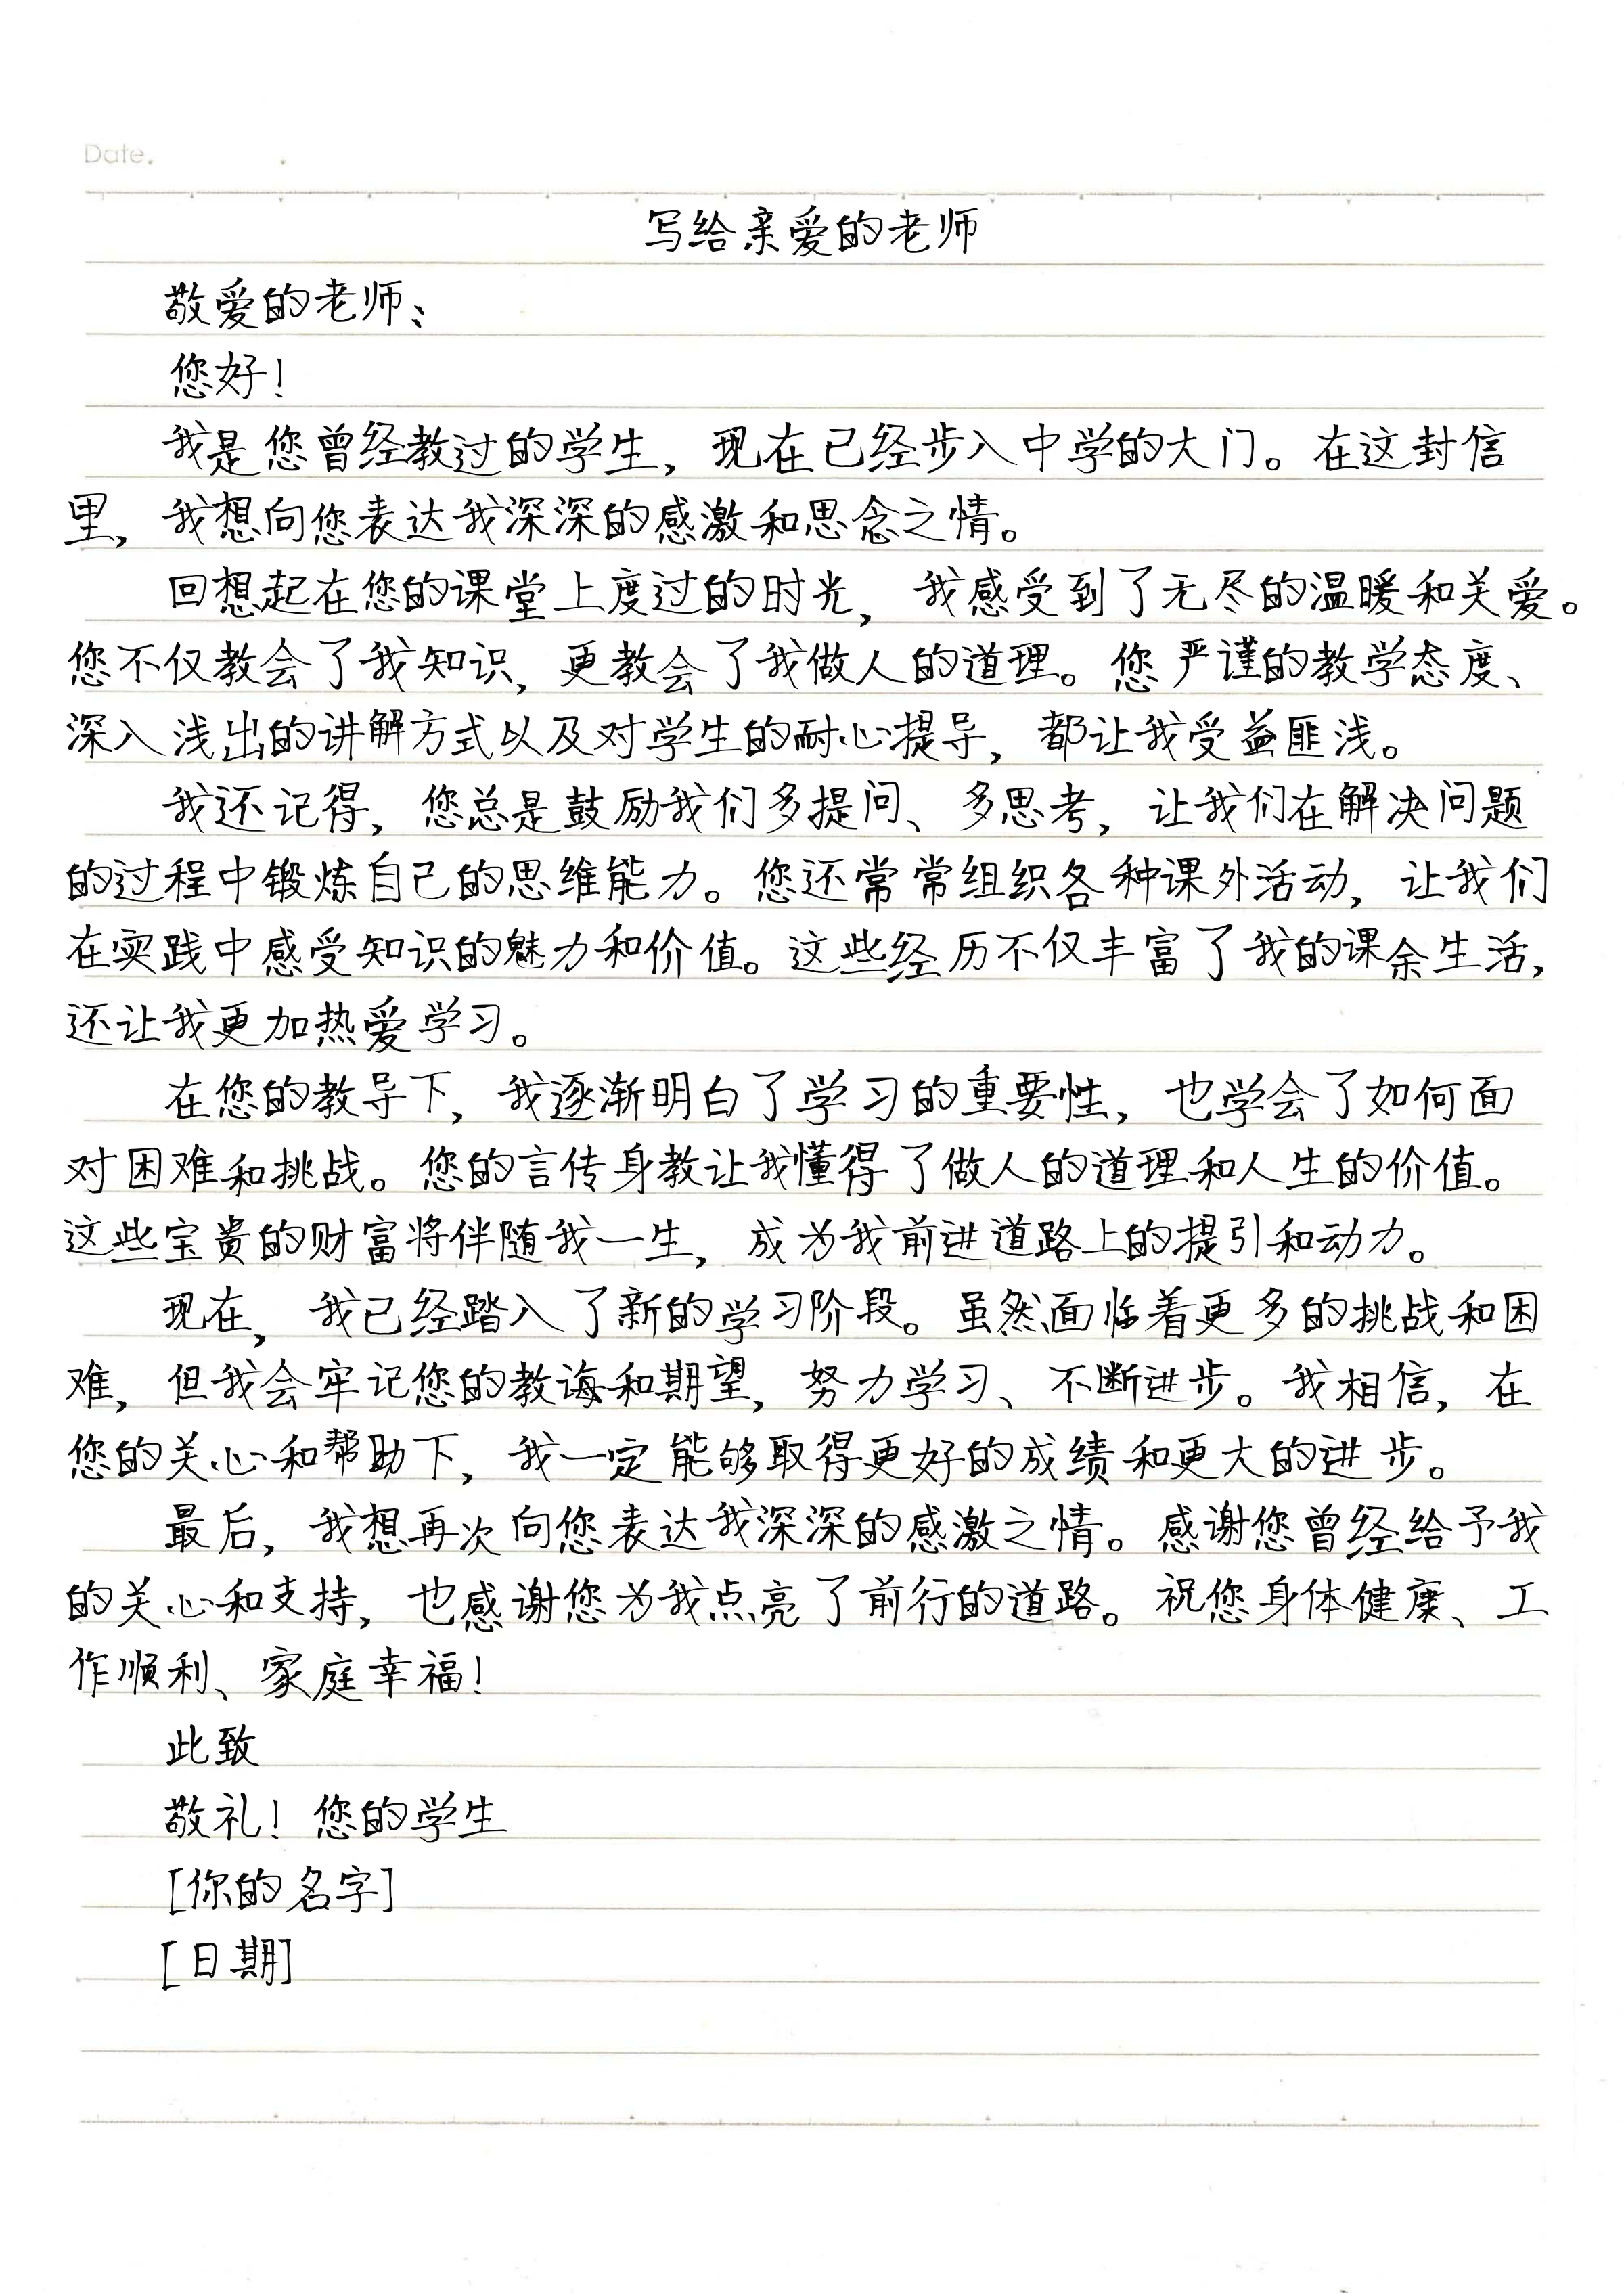 Date.
写给亲爱的老师
敬爱的老师、
您好！
我是您曾经教过的学生，现在已经步入中学的大门。在这封信
里，我想向您表达我深深的感激和思念之情。
回想起在您的课堂上度过的时光，我感受到了无尽的温暖和关爱。
您不仅教会了我知识，更教会了我做人的道理。您严谨的教学态度、
深入浅出的讲解方式以及对学生的耐心提导，都让我受益匪浅。
我还记得，您总是鼓励我们多提问、多思考，让我们在解决问题
的过程中锻炼自己的思维能力。您还常常组织各种课外活动，让我们
在实践中感受知识的魅力和价值。这些经历不仅丰富了我的课余生活，
还让我更加热爱学习。
在您的教导下，我逐渐明白了学习的重要性，也学会了如何面
对困难和挑战。您的言传身教让我懂得了做人的道理和人生的价值。
这些宝贵的财富将伴随我一生，成为我前进道路上的提引和动力。
现在，我已经踏入了新的学习阶段。虽然面临着更多的挑战和困
难，但我会牢记您的教诲和期望，努力学习、不断进步。我相信，在
您的关心和帮助下，我一定能够取得更好的成绩和更大的进步。
最后，我想再次向您表达我深深的感激之情。感谢您曾经给予我
的关心和支持，也感谢您为我点亮了前行的道路。祝您身体健康、工
作顺利、家庭幸福！
此致
敬礼！您的学生
[你的名字]
[日期]